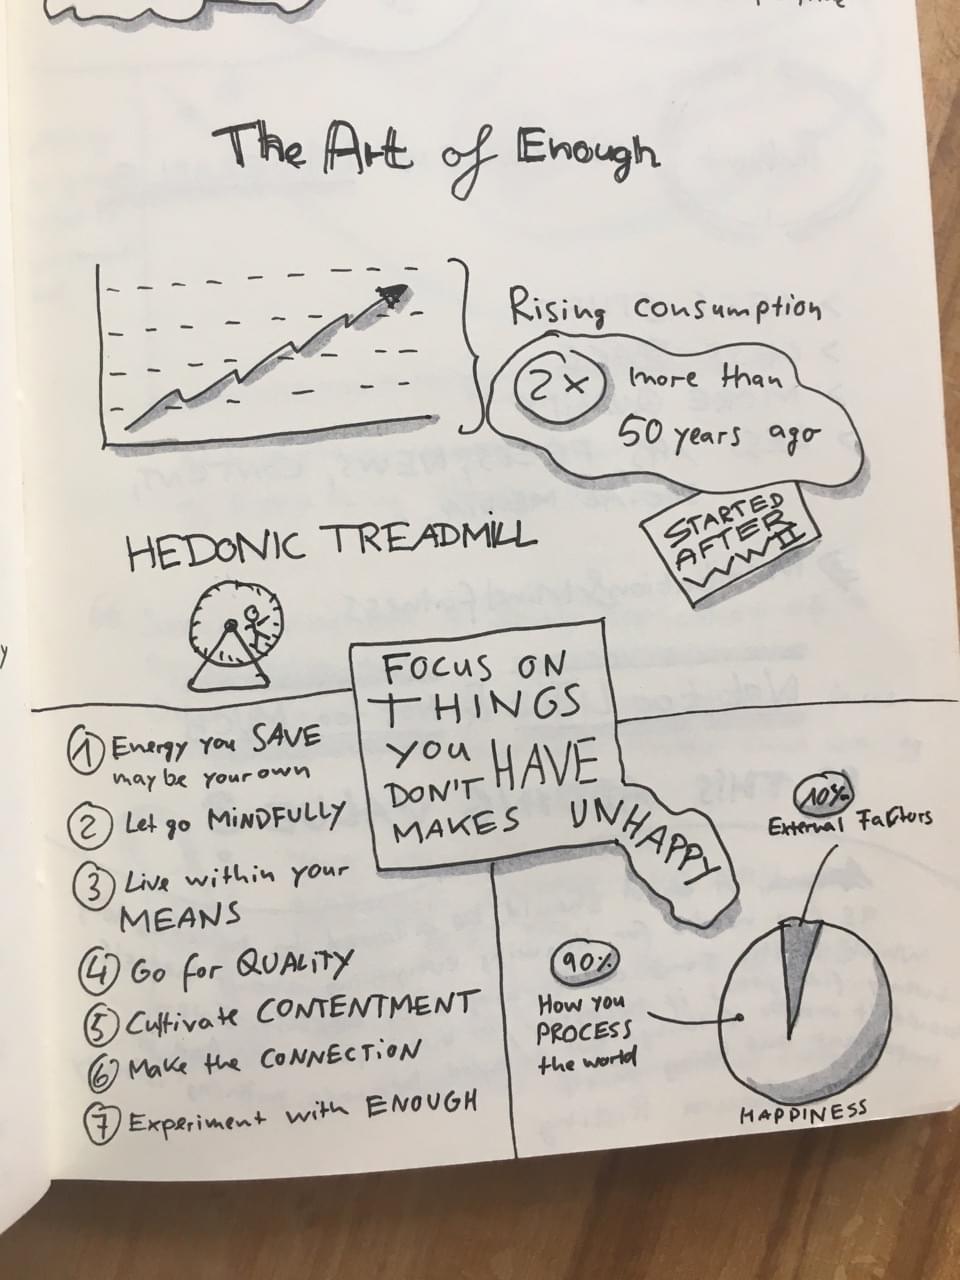 The Art of Enough
Rising consumption
2x more than
50 years ago
STARTED
AFTER
WWII
HEDONIC TREADMILL
FOCUS ON
THINGS
YOU HAVE
DON'T
MAKES UNHAPPY
1 Energy you SAVE
may be your own
2 Let go MINDFULLY
3 Live within your
MEANS
4 Go for QUALITY
5 Cultivate CONTENTMENT
6 Make the CONNECTION
7 Experiment with ENOUGH
10%
External Factors
90%
How you
PROCESS
the world
HAPPINESS